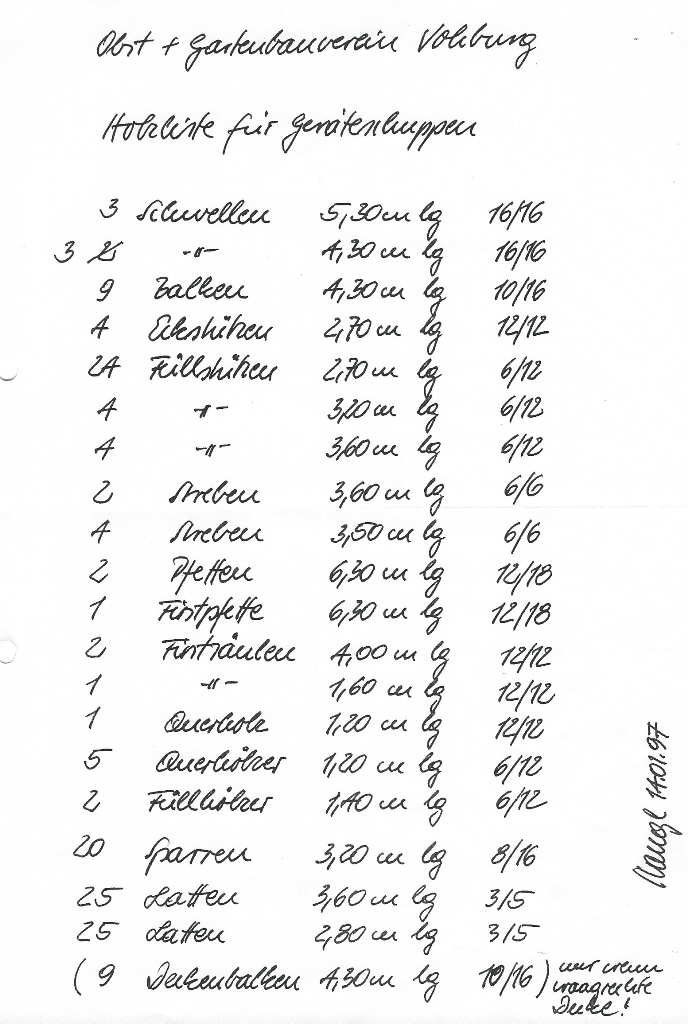 Obst + Gartenbauverein Vohburg
Holzliste für Geräteschuppen
3 Schwellen 5,30 m lg 16/16
3 -"- 4,30 m lg 16/16
9 Balken 4,30 m lg 10/16
4 Eckstützen 2,70 m lg 12/12
24 Füllstützen 2,70 m lg 6/12
4 -"- 3,20 m lg 6/12
4 -"- 3,60 m lg 6/12
2 Streben 3,60 m lg 6/6
4 Streben 3,50 m lg 6/6
2 Pfetten 6,30 m lg 12/18
1 Firstpfette 6,30 m lg 12/18
2 Firstsäulen 4,00 m lg 12/12
1 -"- 1,60 m lg 12/12
1 Querholz 1,20 m lg 12/12
5 Querhölzer 1,20 m lg 6/12
2 Füllhölzer 1,40 m lg 6/12
20 Sparren 3,20 m lg 8/16
25 Latten 3,60 m lg 3/5
25 Latten 2,80 m lg 3/5
( 9 Deckenbalken 4,30 m lg 10/16 ) nur wenn
waagrechte
Decke!
14.01.97